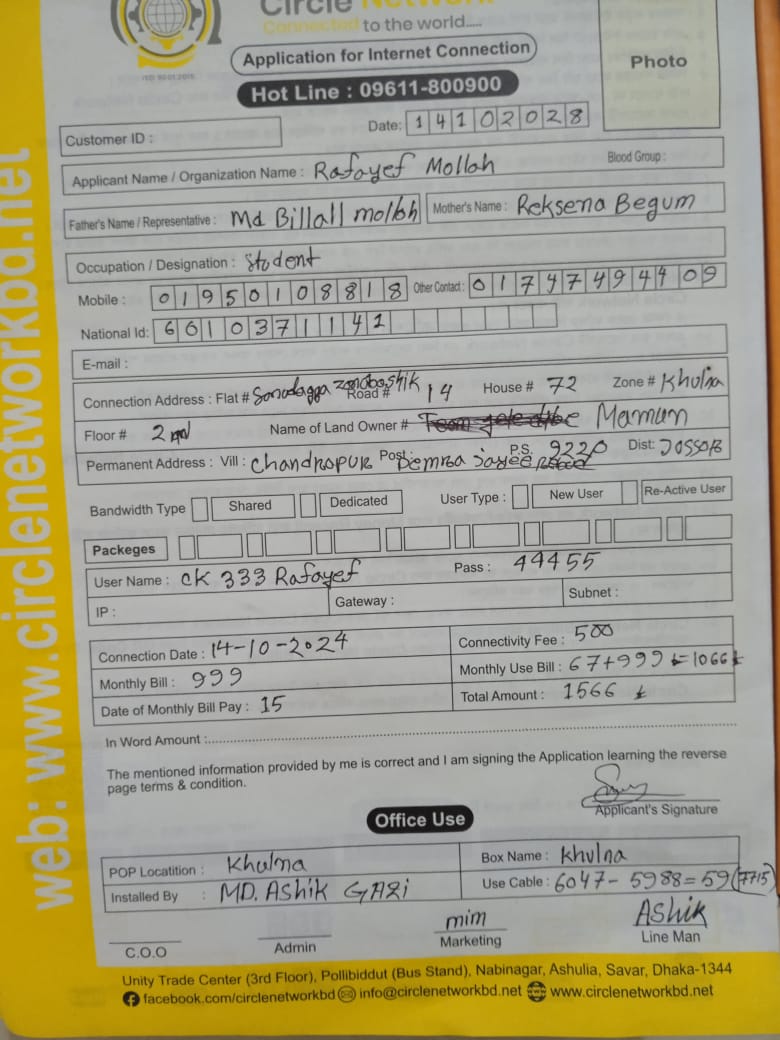 Circle Network
Connected to the world.....
ISO 9001:2015
Application for Internet Connection
Photo
Hot Line : 09611-800900
Date: 14102028
Customer ID :
Applicant Name / Organization Name : Rafayef Mollah Blood Group :
Father's Name / Representative : Md Billall mollah Mother's Name : Reksena Begum
Occupation / Designation : Student
Mobile : 01950108818 Other Contact : 01747494409
National Id: 6610371142
E-mail :
Connection Address : Flat # Road # 14 House # 72 Zone # Khulna
Floor # 2nd Name of Land Owner # Mamun
Permanent Address : Vill : Chandropur Post : P.S. 9220 Dist: Jossor
Bandwidth Type Shared Dedicated User Type : New User Re-Active User
Packeges
User Name : CK 333 Rafayef Pass : 44455
IP : Gateway : Subnet :
Connection Date : 14-10-2024 Connectivity Fee : 500
Monthly Bill : 999 Monthly Use Bill : 67+999 ৳=1066৳
Date of Monthly Bill Pay : 15 Total Amount : 1566 ৳
In Word Amount :
The mentioned information provided by me is correct and I am signing the Application learning the reverse
page terms & condition.
Applicant's Signature
Office Use
POP Locatition : Khulna Box Name : Khulna
Installed By : MD. Ashik GAZi Use Cable : 6047-5988=59(7715)
C.O.O Admin mim Marketing Ashik Line Man
Unity Trade Center (3rd Floor), Pollibiddut (Bus Stand), Nabinagar, Ashulia, Savar, Dhaka-1344
facebook.com/circlenetworkbd info@circlenetworkbd.net www.circlenetworkbd.net
web: www.circlenetworkbd.net